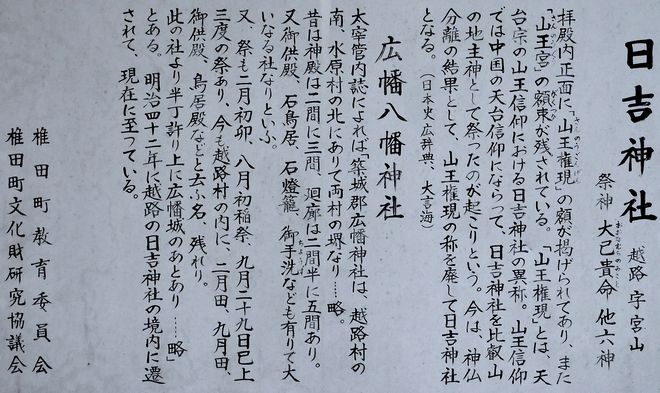 日吉神社
越路字宮山
祭神 大己貴命 他六神
おおなむちのみこと
拝殿内正面に、「山王権現」の額が掲げられてあり、また
さんのうごんげん
「山王宮」の額束が残されている。「山王権現」とは、天
台宗の山王信仰における日吉神社の異称。山王信仰
では中国の天台信仰にならって、日吉神社を比叡山
の地主神として祭ったのが起こりという。今は、神仏
分離の結果として、山王権現の称を廃して日吉神社
となる。(日本史広辞典、大言海)
広幡八幡神社
太宰管内誌によれば「築城郡広幡神社は、越路村の
南、水原村の北にありて両村の堺なり……略。
昔は神殿は二間に三間、廻廊は二間半に五間あり。
又御供殿、石鳥居、石燈籠、御手洗なども有りて大
いなる社なりといふ。
又、祭も二月初卯、八月初稲祭、九月二十九日巳上
三度の祭あり、今も越路村の内に、二月田、九月田、
御供殿、鳥居殿などと云ふ名、残れり。
此の社より半丁許り上に広幡城のあとあり……略」
とある。明治四十二年に越路の日吉神社の境内に遷
されて、現在に至っている。
椎田町教育委員会
椎田町文化財研究協議会